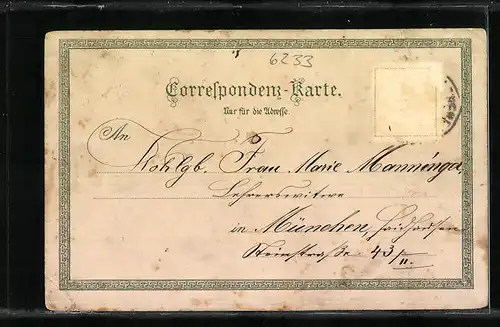 6233
Correspondenz-Karte.
Nur für die Adresse
An
Wohlgb. Frau Marie Manninger
Lehrerswitwe
in München, Haidhausen
Steinstraße 43/II.